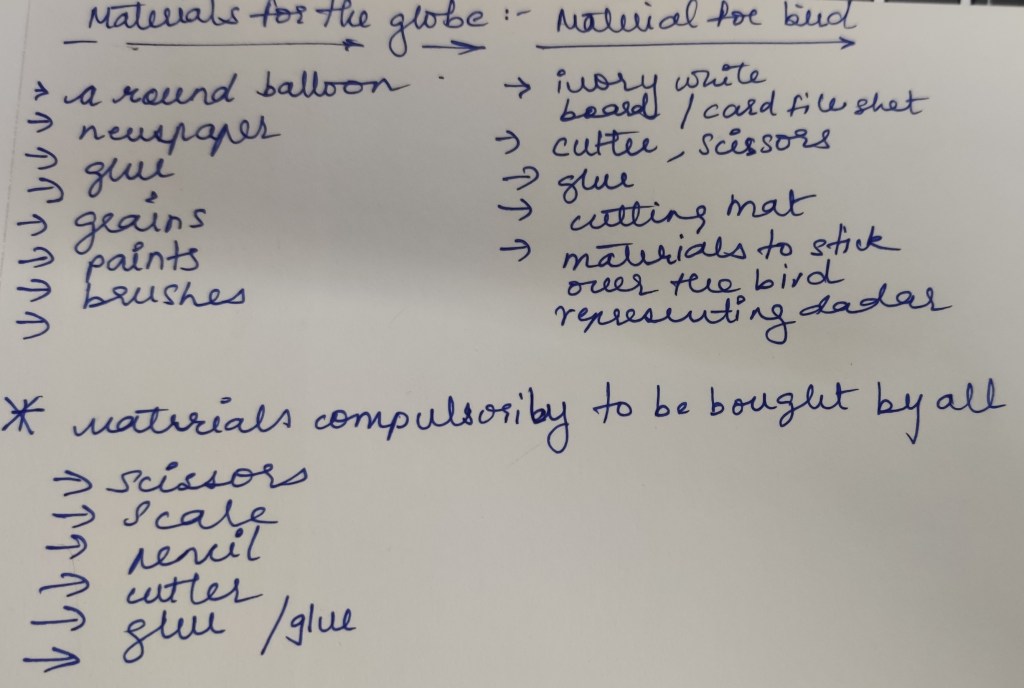 Materials for the globe :-
→ a round balloon
→ newspaper
→ glue
→
→ grains
→ paints
→ brushes
→
Material for bird
→ ivory white
board / card file shet
→ cutter, scissors
→ glue
→ cutting mat
→ materials to stick
over the bird
representing dadar
* materials compulsoriby to be bought by all
→ scissors
→ scale
→ pencil
→ cutter
→ glue / glue
→